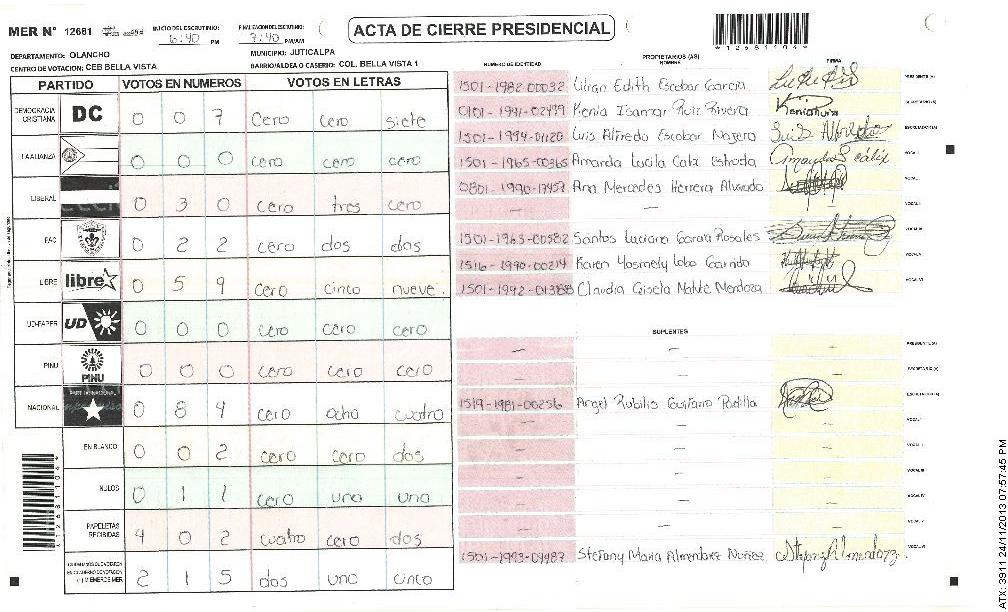 MER N° 12681
INICIO DEL ESCRUTINIO: 6:40 PM
FINALIZACION DEL ESCRUTINIO: 7:40 PM/AM
ACTA DE CIERRE PRESIDENCIAL
12681104
DEPARTAMENTO: OLANCHO
MUNICIPIO: JUTICALPA
CENTRO DE VOTACION: CEB BELLA VISTA
BARRIO/ALDEA O CASERIO: COL. BELLA VISTA 1
PARTIDO VOTOS EN NUMEROS VOTOS EN LETRAS
DEMOCRACIA CRISTIANA DC 0 0 7 cero cero siete
LA ALIANZA 0 0 0 cero cero cero
LIBERAL 0 3 0 cero tres cero
PAC 0 2 2 cero dos dos
LIBRE libre 0 5 9 cero cinco nueve.
UD-FAPER UD 0 0 0 cero cero cero
PINU PINU 0 0 0 cero cero cero
NACIONAL 0 8 4 cero ocho cuatro
EN BLANCO 0 0 2 cero cero dos
NULOS 0 1 1 cero uno uno
PAPELETAS RECIBIDAS 4 0 2 cuatro cero dos
2 1 5 dos uno cinco
12681104
NUMERO DE IDENTIDAD PROPIETARIOS (AS) NOMBRE FIRMA
1501-1982-00032 Lilian Edith Escobar Garcia PRESIDENTE (A)
0101-1991-02499 Kenia Isamar Ruiz Rivera SECRETARIO (A)
1501-1994-01120 Luis Alfredo Escobar Najera ESCRUTADOR (A)
1501-1965-00365 Amanda Lucila VOCAL I
0801-1990-17457 Ana Mercedes Herrera Alvarado VOCAL II
— —
1501-1963-00582 Santos Luciano Garcia Rosales
1516-1990-00214 Karen Yosmely Lobo Garrido
1501-1992-01388 Claudia Gisela Matute Mendoza
SUPLENTES
— — — PRESIDENTE (A)
— — — SECRETARIO (A)
1519-1981-00256 Angel Rubilio Padilla ESCRUTADOR (A)
— — — VOCAL I
— — — VOCAL II
— — — VOCAL III
— — — VOCAL IV
— — — VOCAL V
1501-1993-04487 Stefany Maria Almendarez Nuñez VOCAL VI
ATX: 3911 24/11/2013 07:57:45 PM